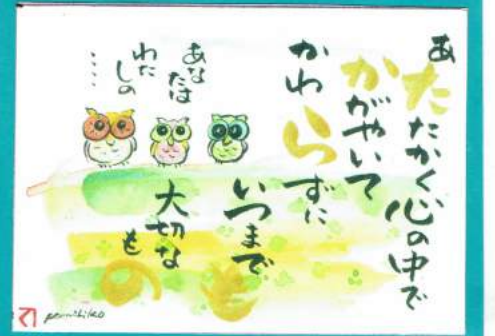 あたたかく心の中で
かがやいて
かわらずに
いつまでも
大切なもの
あなたは
わたしの
‥‥